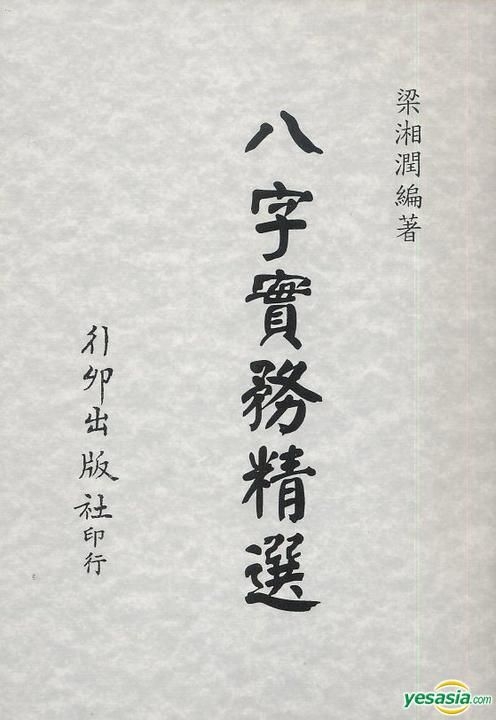 梁湘潤編著
八字實務精選
行卯出版社印行
yesasia.com